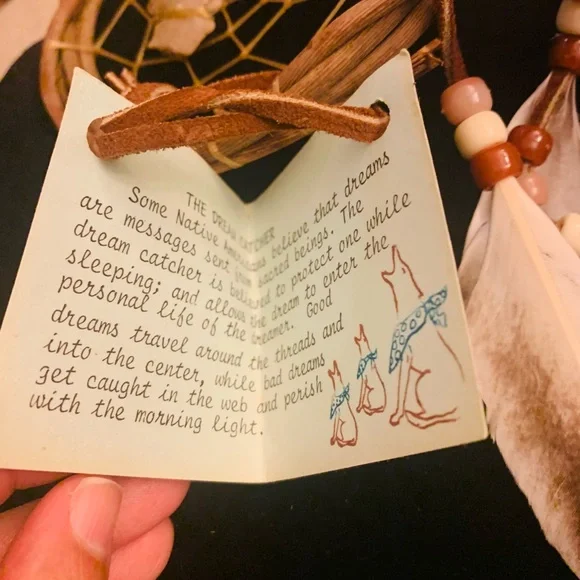 THE DREAM CATCHER
Some Native Americans believe that dreams
are messages sent from sacred beings. The
dream catcher is believed to protect one while
sleeping; and allows the dream to enter the
personal life of the dreamer. Good
dreams travel around the threads and
into the center, while bad dreams
get caught in the web and perish
with the morning light.